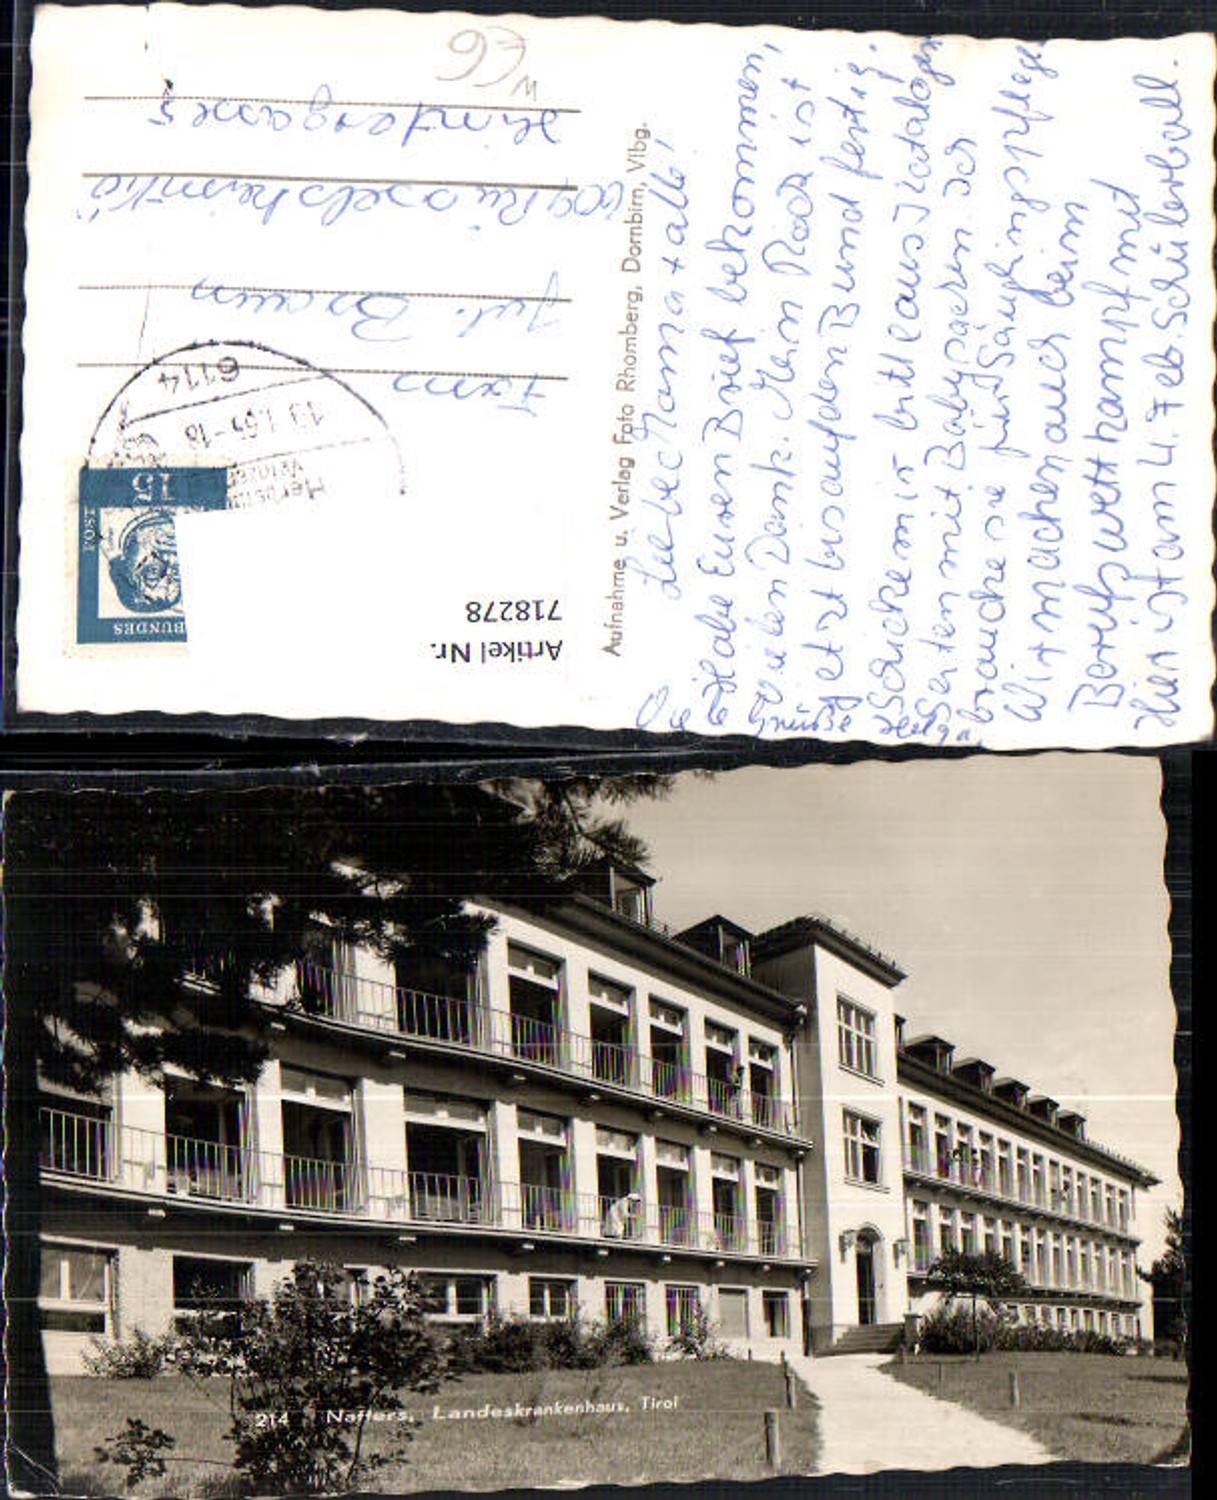 Liebe Mama + alle!
Habe Euren Brief bekommen,
Vielen Dank. Mein Rock ist
jetzt bis auf den Bund fertig.
Schicke mir bitte aus Katalogen
Seiten mit Babysachen. Ich
brauche sie für Säuglingspflege
Wir machen auch beim
Berufswettkampf mit
Hier ist am 4. Feb. Schülerball.
Grüße
Helga
Aufnahme u. Verlag Foto Rhomberg, Dornbirn, Vlbg.
Artikel Nr.
718278
BUNDES
POST
15
6114
-18
Fam
Jul. Braun
609 Rüsselsheim
Hintergasse 5
W €6
214 Natters, Landeskrankenhaus, Tirol